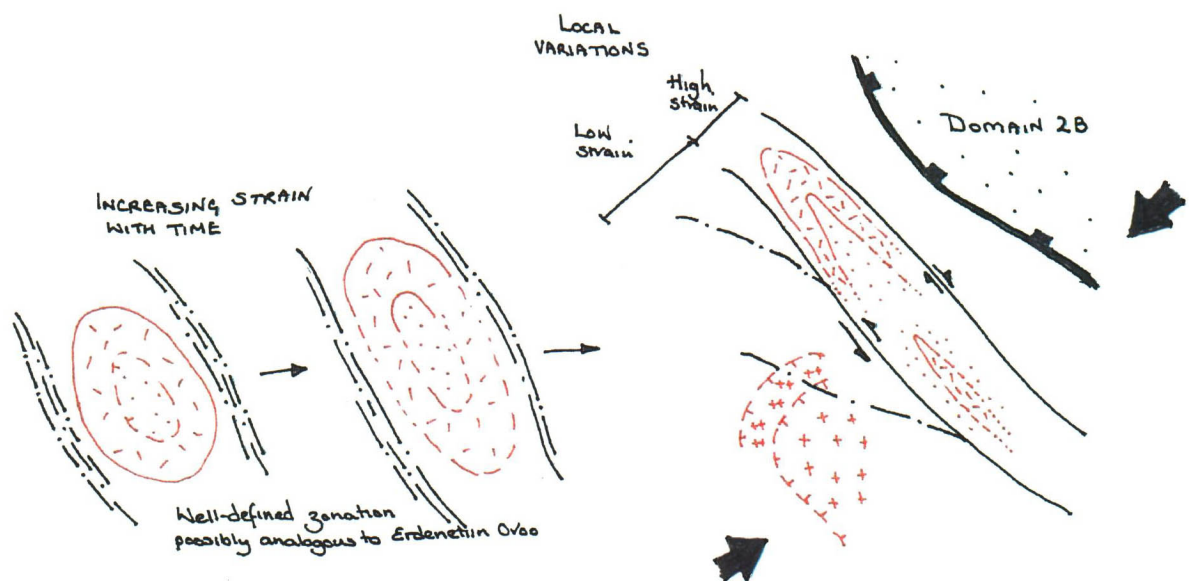 LOCAL
VARIATIONS
High
strain
Low
strain
DOMAIN 2B
INCREASING STRAIN
WITH TIME
Well-defined zonation
possibly analogous to Erdenetiin Ovoo